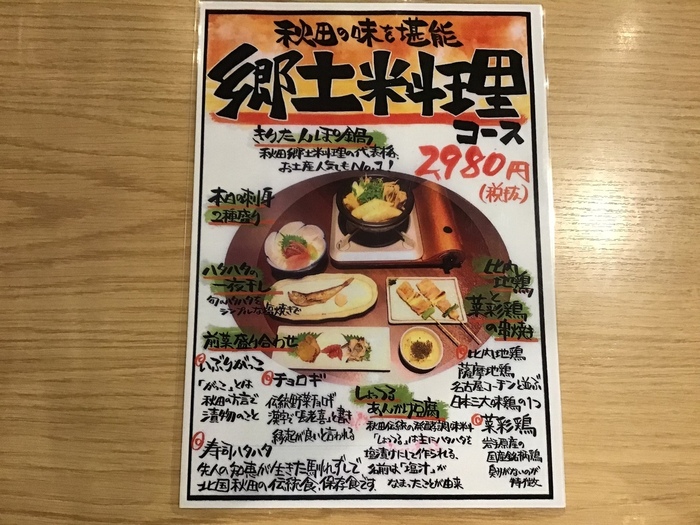 秋田の味を堪能
郷土料理
コース
2,980円
(税抜)
きりたんぽ鍋
秋田郷土料理の代表格、
お土産人気もNo.1!
本日の刺身
2種盛り
ハタハタの
一夜干し
旬のハタハタを
シンプルな塩焼きで
比内
地鶏
と
菜彩鶏
の串焼
前菜盛り合わせ
いぶりがっこ
「がっこ」とは
秋田の方言で
漬物のこと
チョロギ
伝統野菜チョロギ
漢字で「長老喜」と書き
縁起が良いと言われる
寿司ハタハタ
先人の知恵が生きた馴れずしで
北国秋田の伝統食、保存食です
しょっつる
あんかけ豆腐
秋田伝統の発酵調味料
「しょっつる」は主にハタハタを
塩漬けにして作られる、
名前は「塩汁」が
なまったことが由来
比内地鶏
薩摩地鶏
名古屋コーチンと並ぶ
日本三大味鶏の1つ
菜彩鶏
岩手県産の
国産銘柄鶏
臭みがないのが
特徴